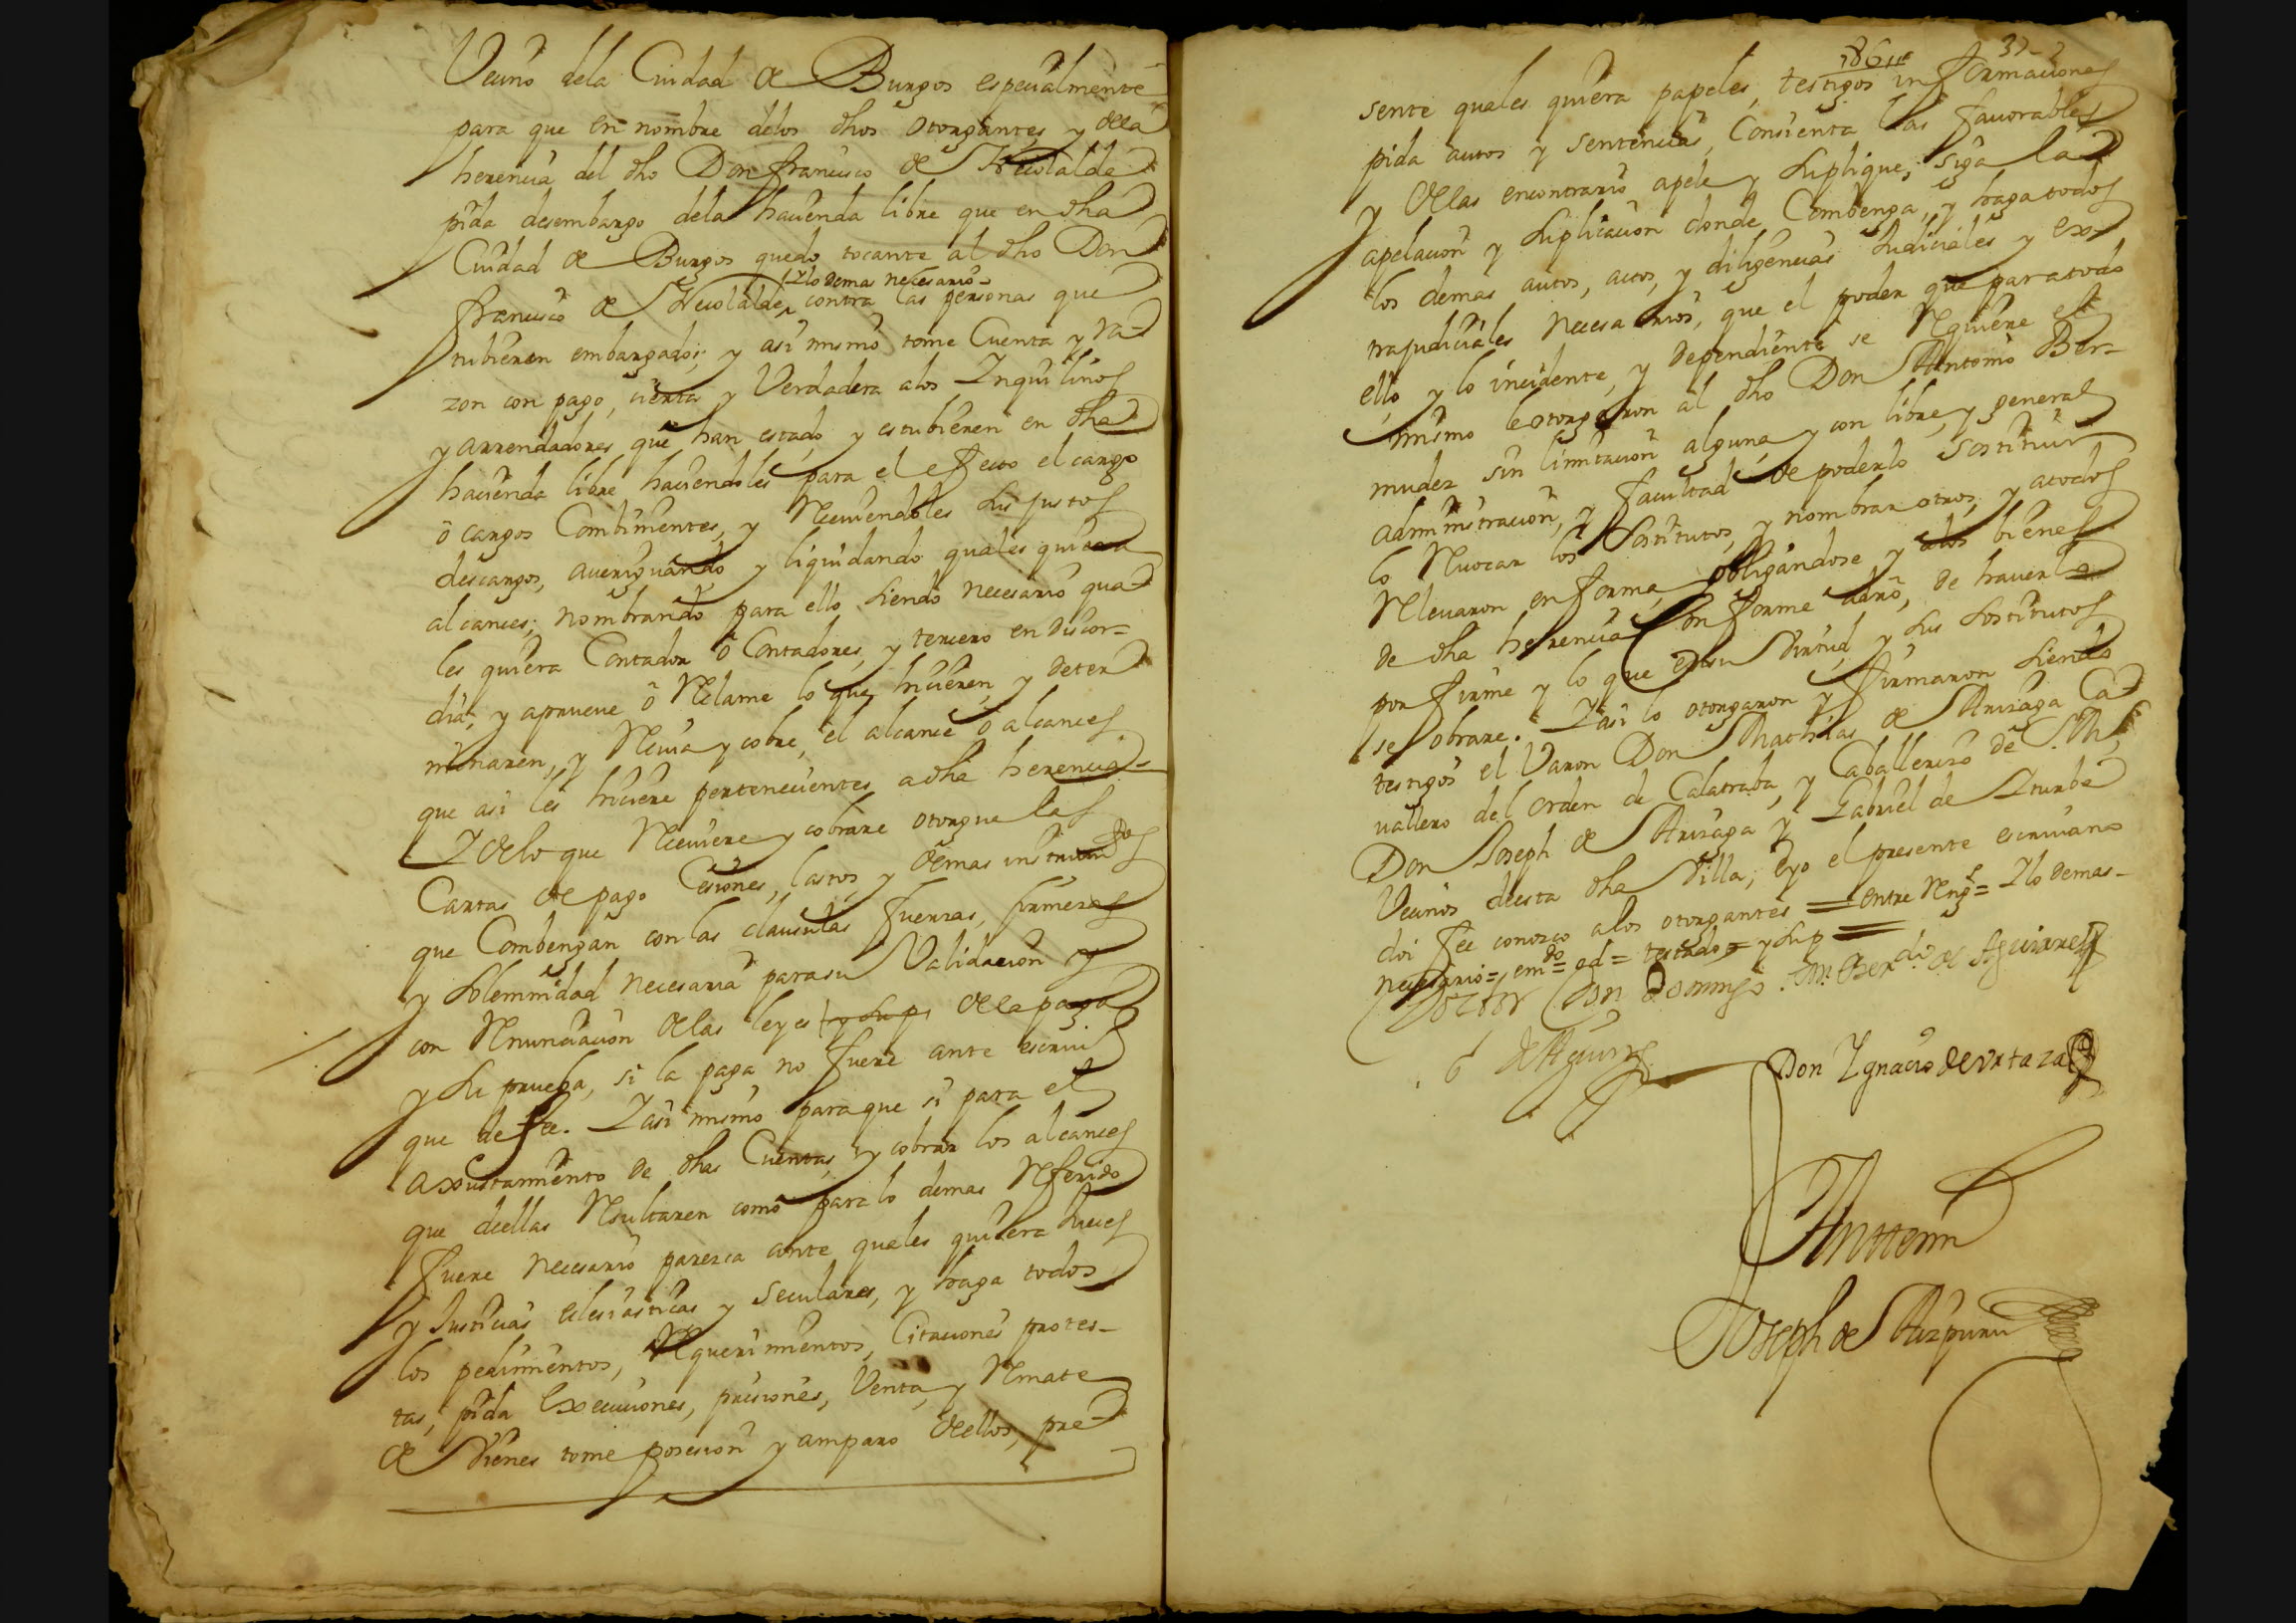 Veçino dela Ciudad de Burgos espeçialmente
para que en nombre delos dhos otorgantes y dela
herençia del dho Don françisco de Necolalde
pida desembargo dela haçienda libre que en dha
Ciudad de Burgos quedo tocante al dho Don
Ylo demas neçesario
françisco de Necolalde, contra las personas que
tubieren embargados; y asi mismo tome Cuenta y ra-
zon con pago, çierta y Verdadera alos Inquilinos
y arrendadores que han estado y estubieren en dha
haçienda libre haçiendoles para el efecto el cargo
o cargos Combinientes, y Reçiviendoles sus justos
descargos, averiguando y liquidando quales quiera
alcançes; nombrando para ello siendo neçesario qua-
les quiera Contador o Contadores, y terçero en discor-
dia, y aprueve o Reclame lo que hiçieren, y deter-
minaren, y Reçiva y cobre, el alcançe o alcançes
que asi les hiçiere perteneçientes a dha herençia-
Y delo que Reçiviere y cobrare otorgue las
Cartas de pago Çesiones, lastos y demas instrumtos
que Combengan con las clausulas fuerzas, firmezas
y solemnidad neçesaria para su Validaçion y
con Renunçiaçion de las leyes y su p dela paga
y su prueba, si la paga no fuere ante escrivo
que de fee. Y asi mismo para que si para el
axustamiento de dhas Cuentas, y cobrar los alcançes
que deellas Resultaren como para lo demas Referido
fuere neçesario parezca ante quales quiera Jueçes
y Justiçias eclesiasticas y seculares, y haga todos
los pedimentos, Requerimientos, Çitaçiones protes-
tas, pida Execuçiones, prisiones, Venta, y Remate
de Vienes tome posesion y amparo deellos, pre-
sente quales quiera papeles, testigos informaçiones
pida autos y sentençias, Consienta las favorables
y delas encontrario apele y suplique, siga la
apelaçion y suplicaçion donde Combenga, y haga todos
los demas autos, actos, y diligençias Judiçiales y ex-
trajudiçiales neçesarios, que el poder que para todo
ello, y lo inçidente, y dependiente se Requiere el
mismo le otorgaron al dho Don Antonio Ber-
mudez sin limitaçion alguna, y con libre, y general
administraçion, y facultad de poderlo sostituir
lo Revocar los Sostitutos, y nombrar otros, y atodos
Relevaron en forma, obligandose y alos bienes
de dha herençia Conforme adro, de haver
por firme y lo que en su Virtud, y sus sostitutos
se obrare. Y asi lo otorgaron y firmaron siendo
testigos el Varon Don Mathias de Arizaga Ca-
vallero del orden de Calatraba, y Caballerizo de S. M,
Don Joseph de Arizaga y Gabriel de Yturbe
Veçinos deesta dha Villa; eyo el presente escrivano
doi fee conozco alos otorgantes = entre Reng.s = Ylo demas-
neçesario = emdo = ed = testado = y su p =
Doctor Don Domingo
de Aguirre
de Aguirre
Don Ygnaçio de Vrtaza
Antemi
Joseph de Aizpuru